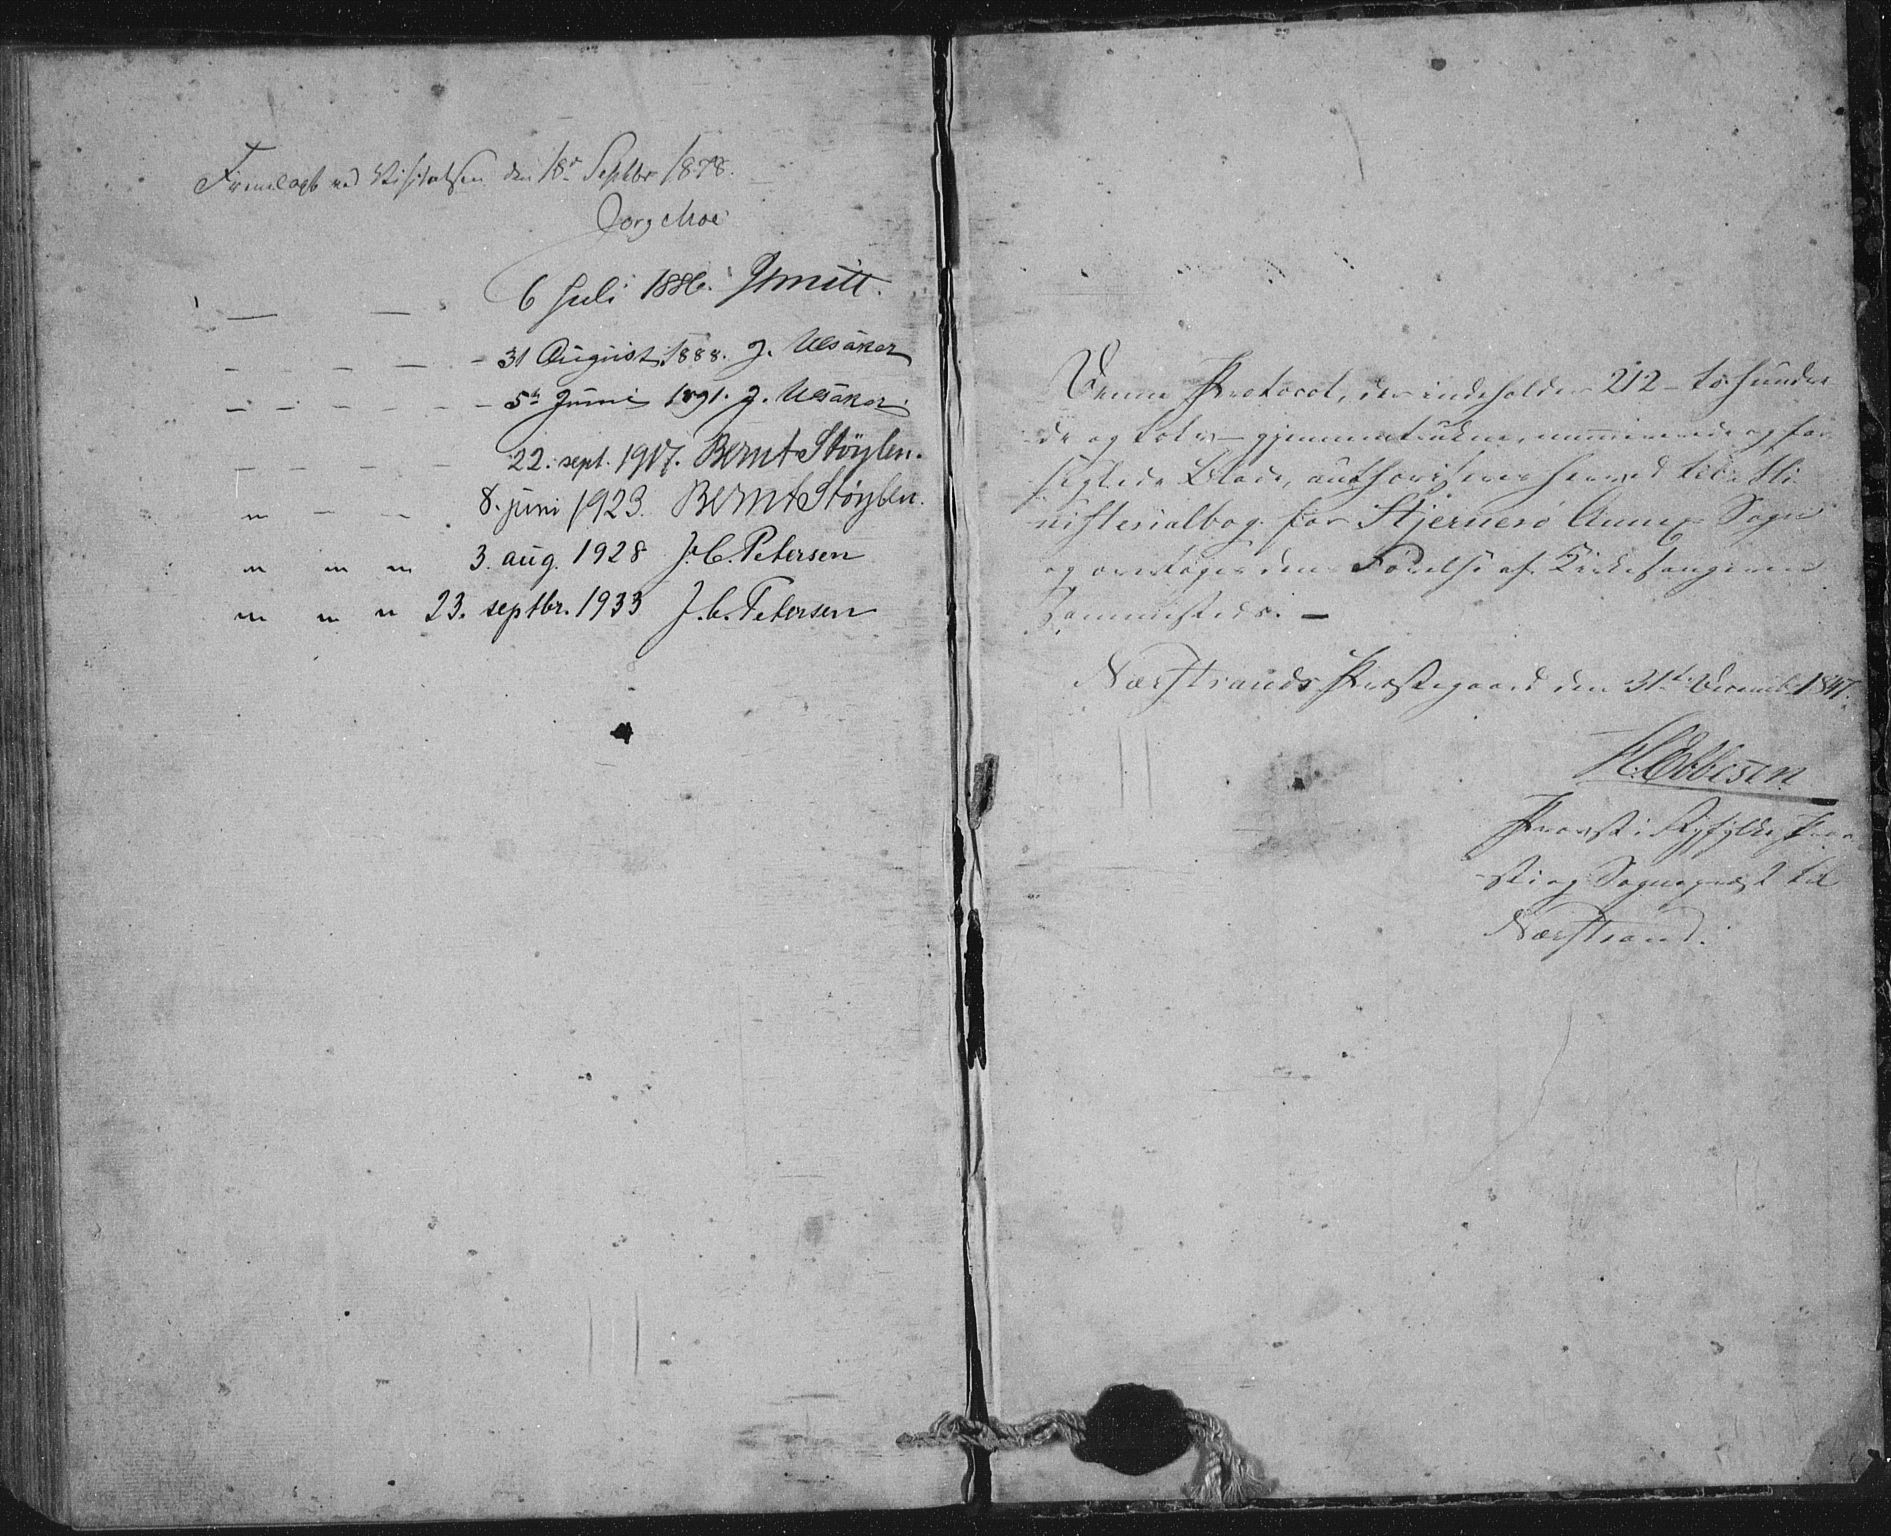 Fremlagt ved Visitatsen den 18de Septbr 1878.
Jørg. Moe
— — 6 Juli 1886. Smitt.
- - - - - 31 August 1888. J. Ulsaker
- - - - - - 5te Juni 1891. J. Ulsaker.
- - - - - 22. sept. 1917. Bernt Støylen.
" - - 8. juni 1923. Bernt Støylen.
" " " 3. aug. 1928 J. C. Petersen
" " " 23. septbr. 1933 J. C. Petersen
Denne Protocol, der indeholder 212 - to hunder-
de og tolv - gjennemtrukne, numererede og for-
seglede Blade, authoriseres herved til Mi-
nisterialbog for Hjernerø Annex Sogn
og overdrages den Førelse af Kirkesangeren
sammesteds. —
Nærstrands Præstegaard den 31te Decembr 1847.
H. Ebbesen
Provst i Ryfylke Prov-
sti og Sognepræst til
Nærstrand.